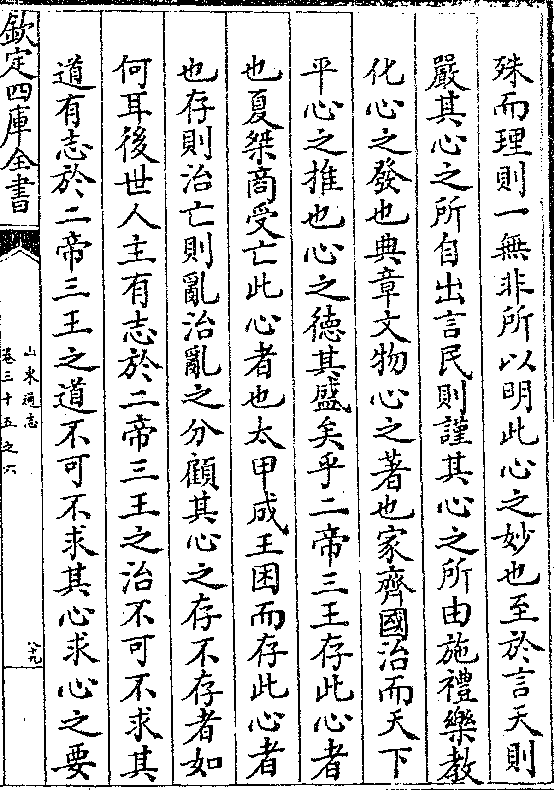 殊而理則一無非所以明此心之妙也至於言天則
嚴其心之所自出言民則謹其心之所由施禮樂教
化心之發也典章文物心之著也家齊國治而天下
平心之推也心之徳其盛矣乎二帝三王存此心者
也夏桀商受亡此心者也太甲成王困而存此心者
也存則治亡則亂治亂之分顧其心之存不存者如
何耳後世人主有志於二帝三王之治不可不求其
道有志於二帝三王之道不可不求其心求心之要
欽定四庫全書
山東通志
卷三十五之六
八十九